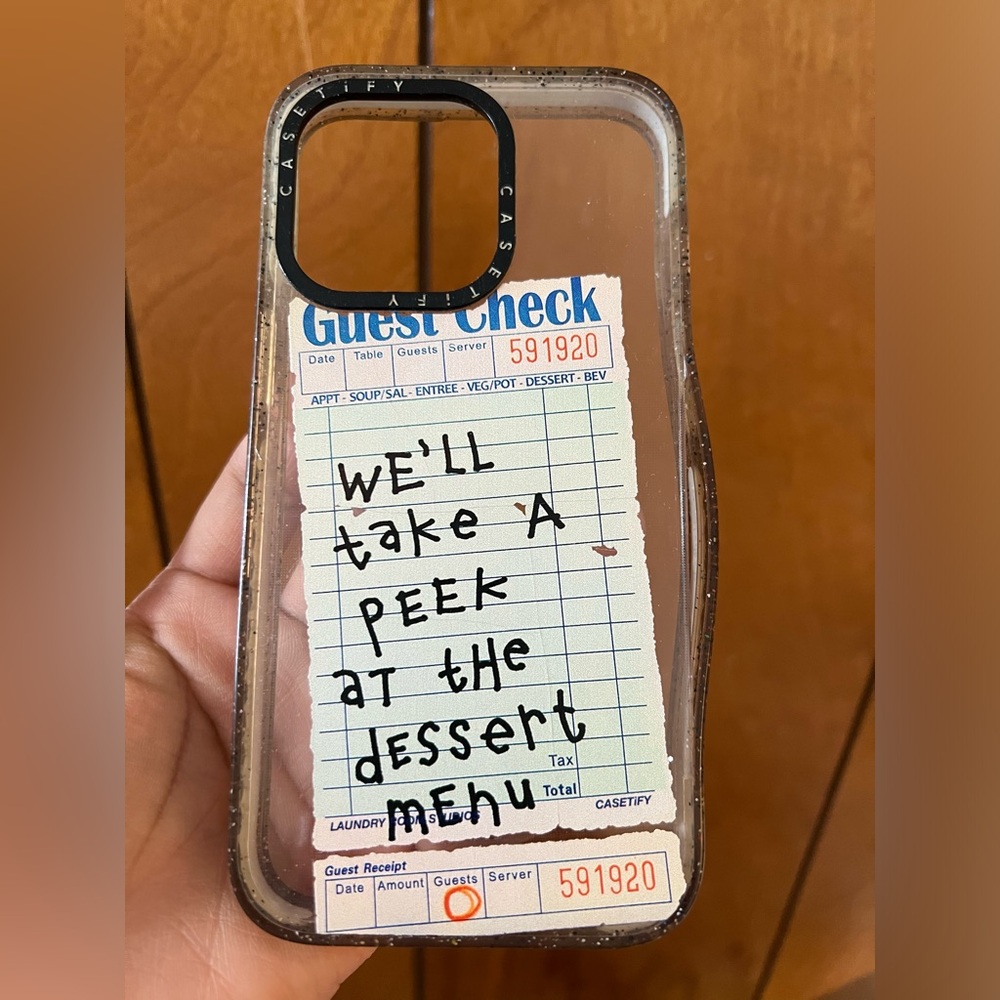 CASETiFY
CASETiFY
CASETiFY
Guest Check
Date Table Guests Server 591920
APPT - SOUP/SAL - ENTREE - VEG/POT - DESSERT - BEV
WE'LL
take A
PEEK
aT tHe
dESSert
mEnu
Tax
Total
LAUNDRY ROOM STUDIOS CASETiFY
Guest Receipt
Date Amount Guests Server 591920